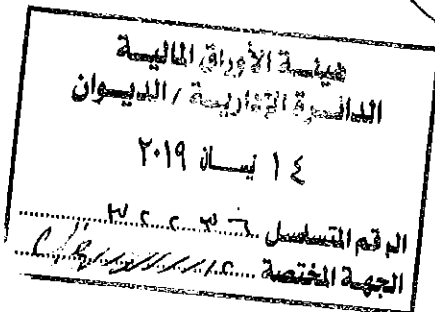 هيئة الأوراق المالية
الدائرة الإدارية / الديوان
١٤ نيسان ٢٠١٩
الرقم المتسلسل
الجهة المختصة